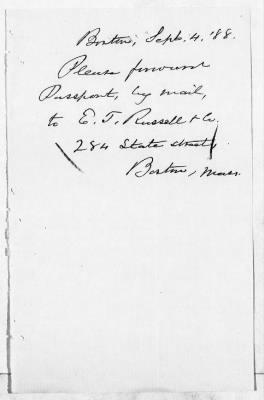 Boston, Sept. 4. '88.
Please forward
Passport, by mail,
to E. T. Russell & Co.
284 State street,
Boston, Mass.